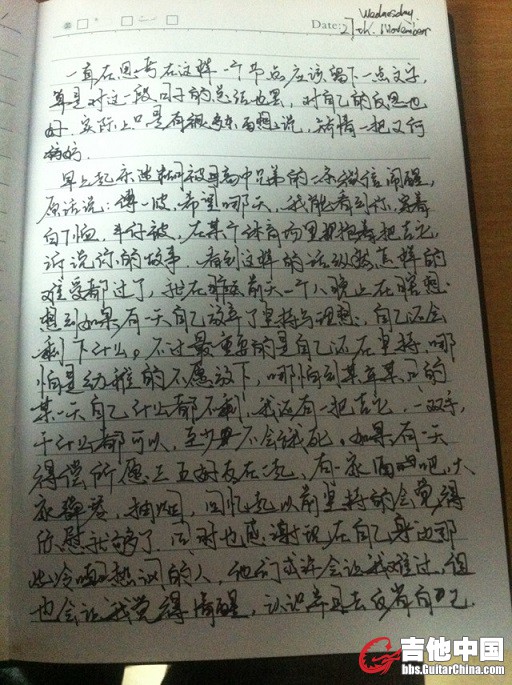 Wednesday.
Date: 27th. November
一直在思考在这样一个节点应该留下一点文字,
算是对这一段日子的总结也罢,对自己的反思也
好.实际上只是有很多东西想说,矫情一把又何
妨.
早上起床 被高中兄弟的一条微信闹醒,
原话说:谭一波,希望哪天,我能看到你,穿着
白T恤.牛仔裤.在某个体育场里抱着把吉它,
诉说你的故事.看到这样的话纵然怎样的
难受都过了,我在 前天一个人晚上在瞎想.
想到如果有一天自己放弃了坚持与理想,自己还会
剩下什么.不过最重要的是自己还在坚持.哪
怕是幼稚的不愿放下,哪怕到某年某月的
某一天自己什么都不剩,我还有一把吉它.一双手,
干什么都可以,至少 不会饿死.如果有一天
得偿所愿.三五好友在一起,在 酒吧,大
家弹琴,抽烟,回忆起以前坚持的会觉得
欣慰就够了.同时也感谢现在自己身边那
些冷嘲热讽的人,他们或许会让我难过,但
也会让我觉得清醒,认识并且去反省自己.
吉他中国
bbs.GuitarChina.com